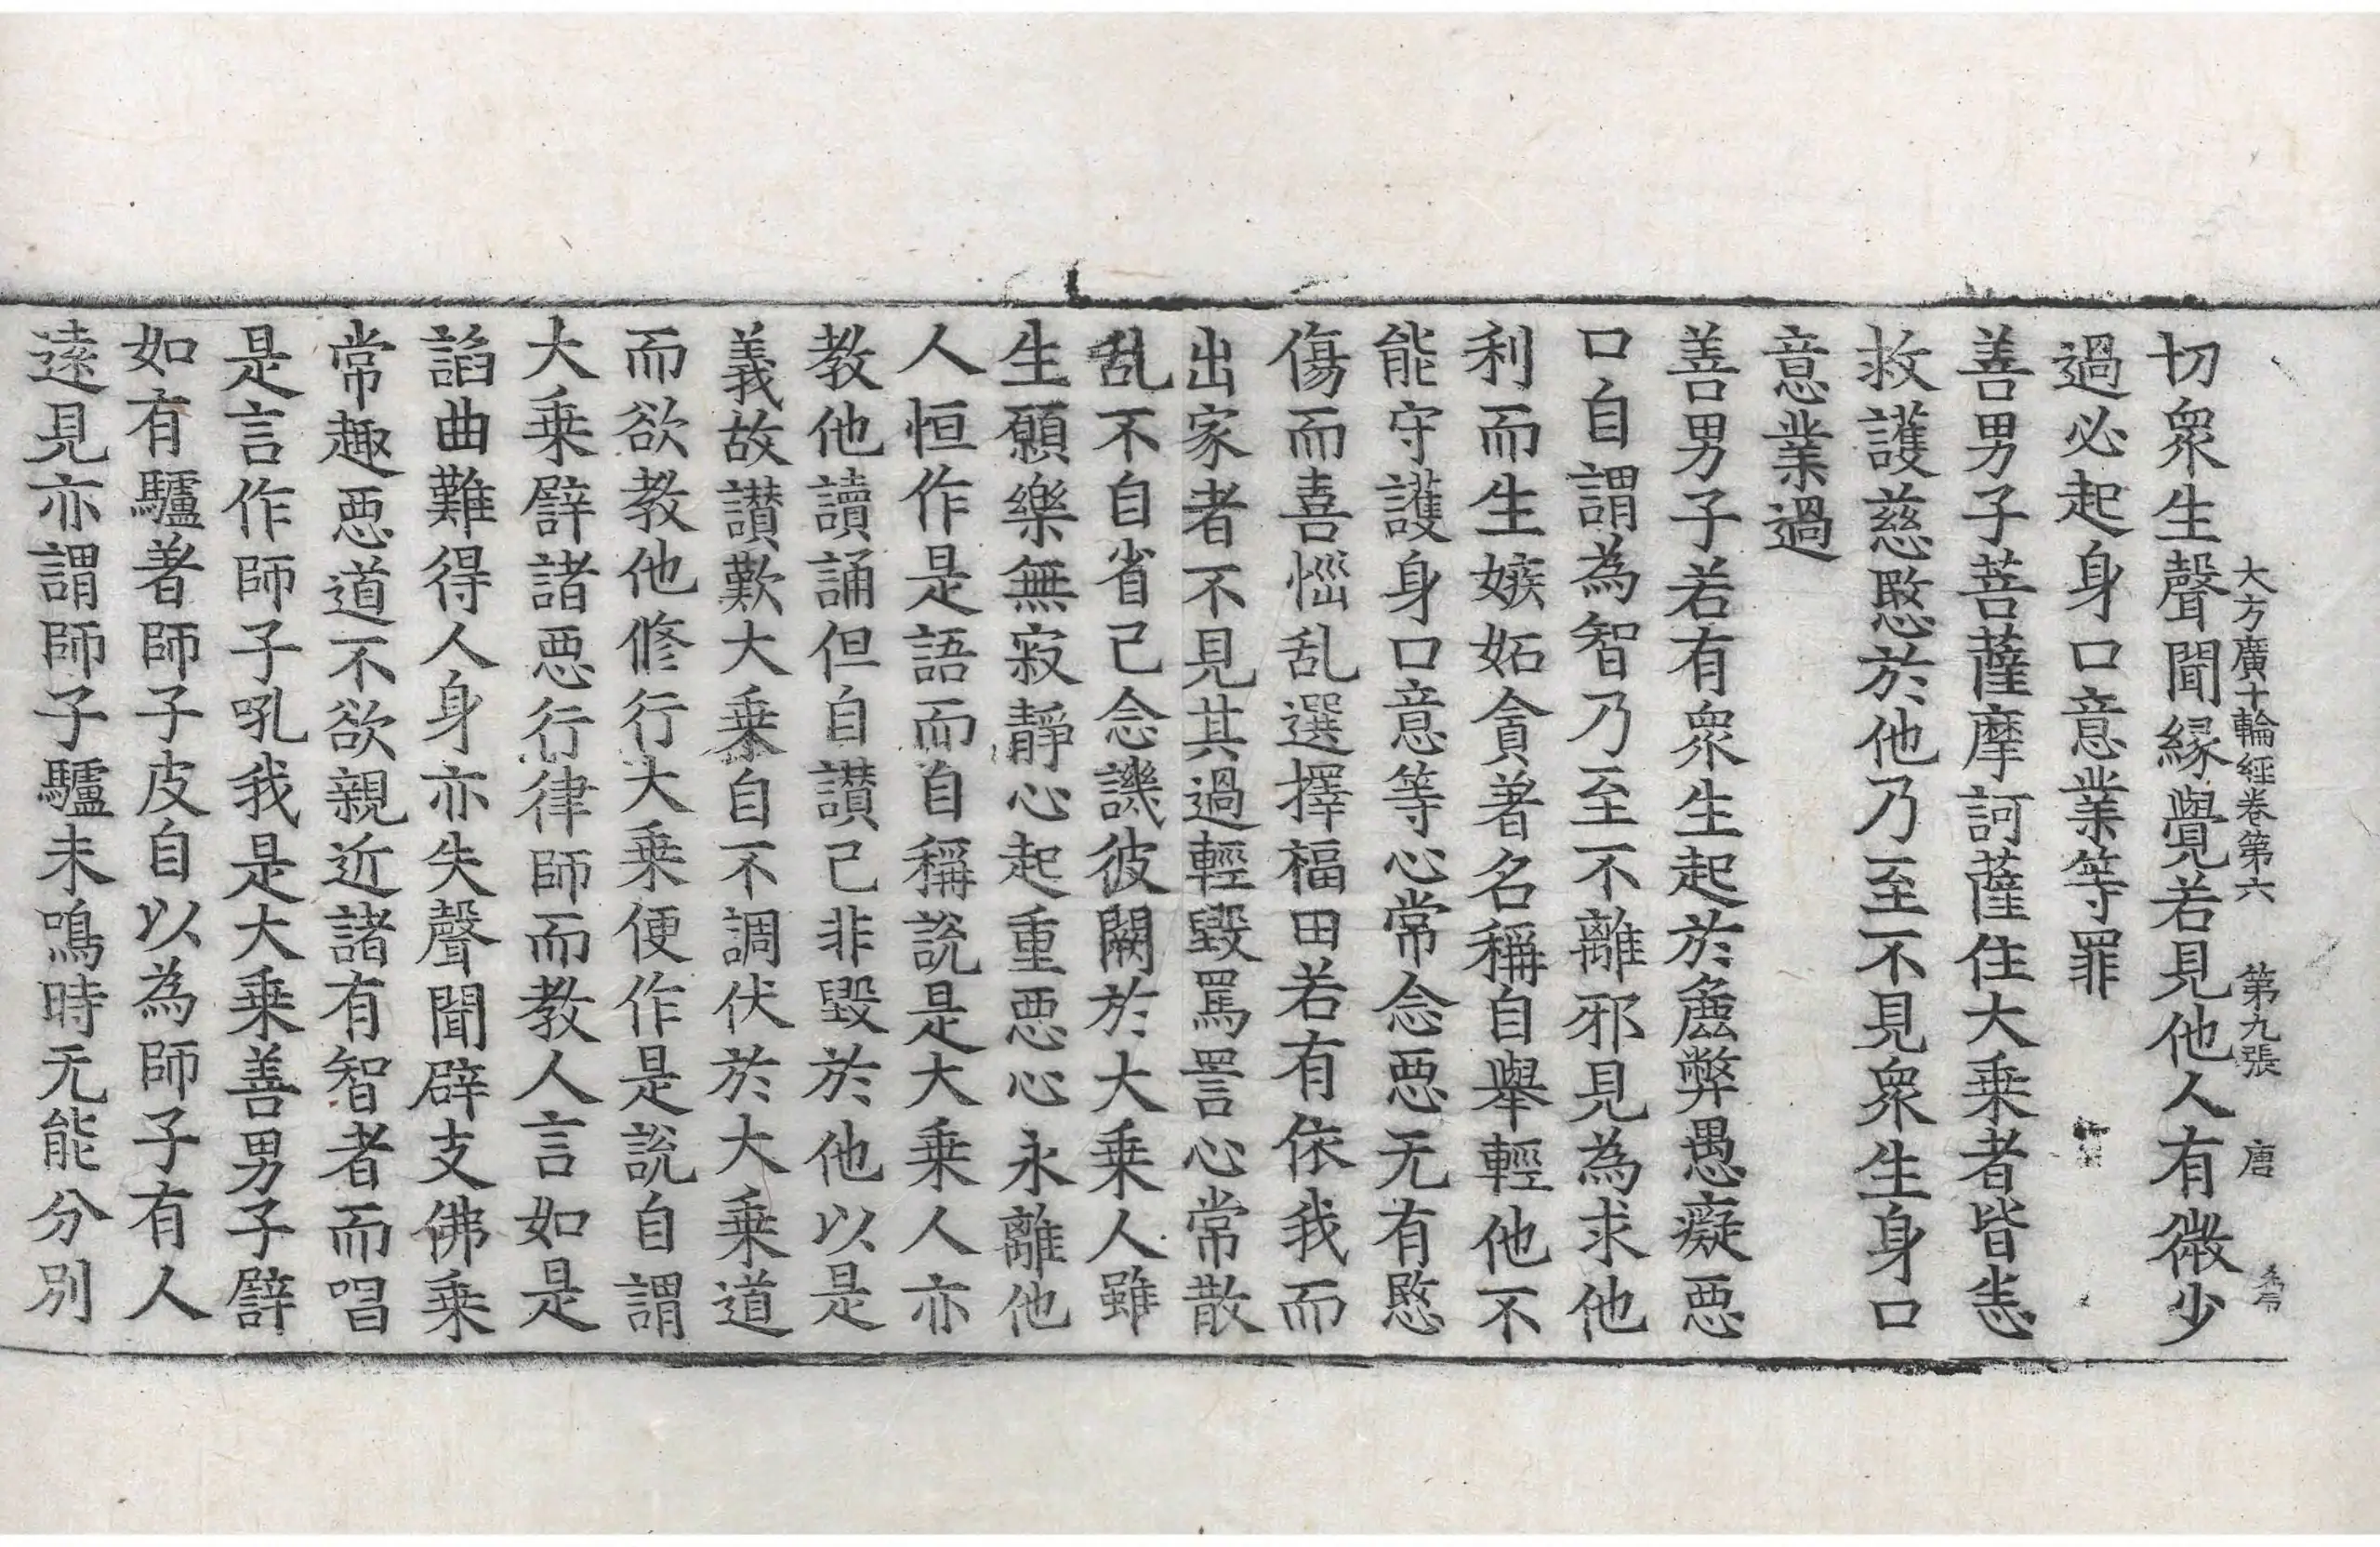 大方廣十輪經卷第六　第九張　唐
切衆生聲聞緣覺若見他人有微少
過必起身口意業等罪
善男子菩薩摩訶薩住大乗者皆悉
救護慈愍於他乃至不見衆生身口
意業過
善男子若有衆生起於麁弊愚癡惡
口自謂為智乃至不離邪見為求他
利而生嫉妬貪著名稱自舉輕他不
能守護身口意等心常念惡无有愍
傷而喜惱乱選擇福田若有依我而
出家者不見其過輕毀罵詈心常散
乱不自省己念譏彼闕於大乗人雖
生願樂無寂靜心起重惡心永離他
人恒作是語而自稱說是大乗人亦
教他讀誦但自讃己非毀於他以是
義故讃歎大乗自不調伏於大乗道
而欲教他脩行大乗便作是說自謂
大乗辟諸惡行律師而教人言如是
諂曲難得人身亦失聲聞辟支佛乗
常趣惡道不欲親近諸有智者而唱
是言作師子吼我是大乗善男子譬
如有驢著師子皮自以為師子有人
遠見亦謂師子驢未鳴時无能分別